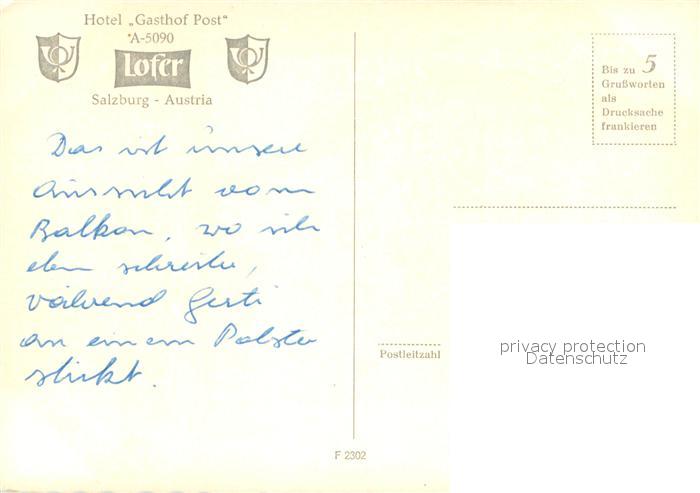 Hotel „Gasthof Post"
A-5090
Lofer
Salzburg - Austria
Bis zu 5
Grußworten
als
Drucksache
frankieren
Das ist unsere
Aussicht vom
Balkon, wo ich
eben schreibe,
während Gerti
an einem Polster
stickt.
Postleitzahl
privacy protection
Datenschutz
F 2302